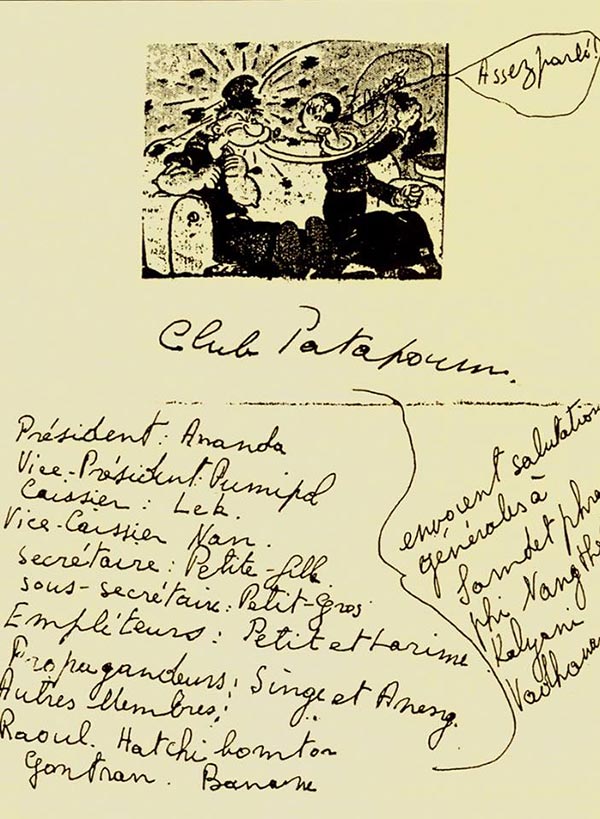 Assez parlé!
Club Patapoum.
Président: Ananda
Vice-Président: Pumipol
Caissier: Lek.
Vice-Caissier Nan.
Secrétaire: Petite-fille
sous-secrétaire: Petit-Gros
Empléteurs: Petit et Larime
Propagandeurs: Singe et Anesg.
Autres Membres:
Raoul. Hatchi bomtor
Gontran. Banane
envoient salutation
générales à
Somdet phra
phi Nang the
Kalyani
Vadhana